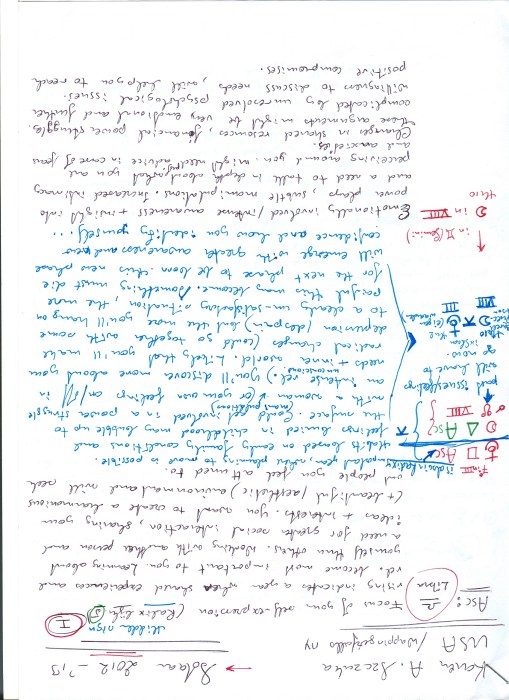 Karen A. Szczuka → Solar 2012 - '13
USA / Wappingerfalls ny
Hidden sign I
Asc: ♎ Libra
Focus of your self-expression
rising indicates a year where shared experiences and
rel. become most important to learning about
yourself thru others. Working with another person and
a need for greater social interaction, sharing your
ideas + interests. You want to create a harmonious
(+ beautiful / aesthetic) environment and will seek
out people you feel attuned to.
year, when planning to move is possible.
□ Asc
habits based on early family conditions and
feelings buried in childhood may bubble up to
the surface. Could get involved in a power struggle
(manipulations)
with a woman or your own feelings
an intense rel.) You'll discover more about your
needs + inner world. Likely that you'll make
radical changes (could go together with some
depression / despair) but the more you'll hang on
to a clearly un-satisfying situation, the more
painful this may become. Something must die
for the next phase to be born. This new phase
will emerge with greater awareness and new
confidence and how you identify yourself...
past issues/feelings
will have to
go now.
☽ in VIII
↑ in ♊ (Gemini)
Emotionally involved / intense awareness + insight into
power plays, subtle manipulations. Increased intimacy
and a need to talk in depth about what you are
perceiving around you. Might need advice in case of fears
and anxieties.
Changes in shared resources, financial power struggles,
these arguments might be very emotional and further
complicated by unresolved psychological issues.
Willingness to discuss needs, will help you to reach
positive compromises.